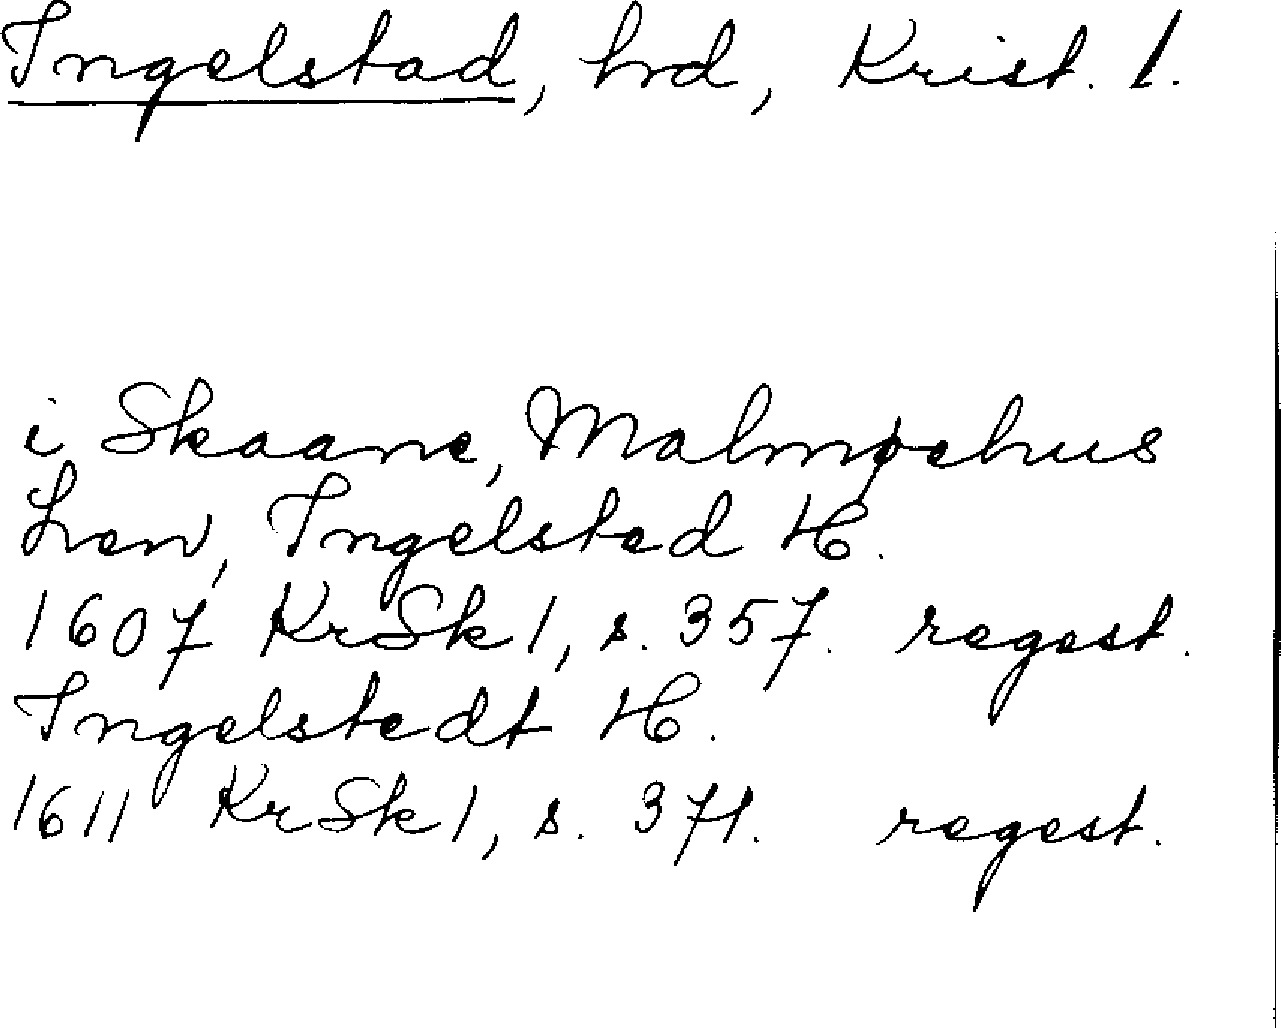 Ingelstad, hrd, Krist. l.
i Skaane, Malmøehus
Len, Ingelsted H.
1607 KrSk 1, s. 357. regest.
Ingelstedt H.
1611 KrSk 1, s. 371. regest.